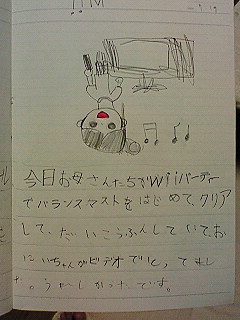 今日お母さんたちでWiiパーティー
でバランスマストをはじめて、クリア
して、だいこうふんしていてお
にいちゃんがビデオでとってまし
た。うれしかったです。